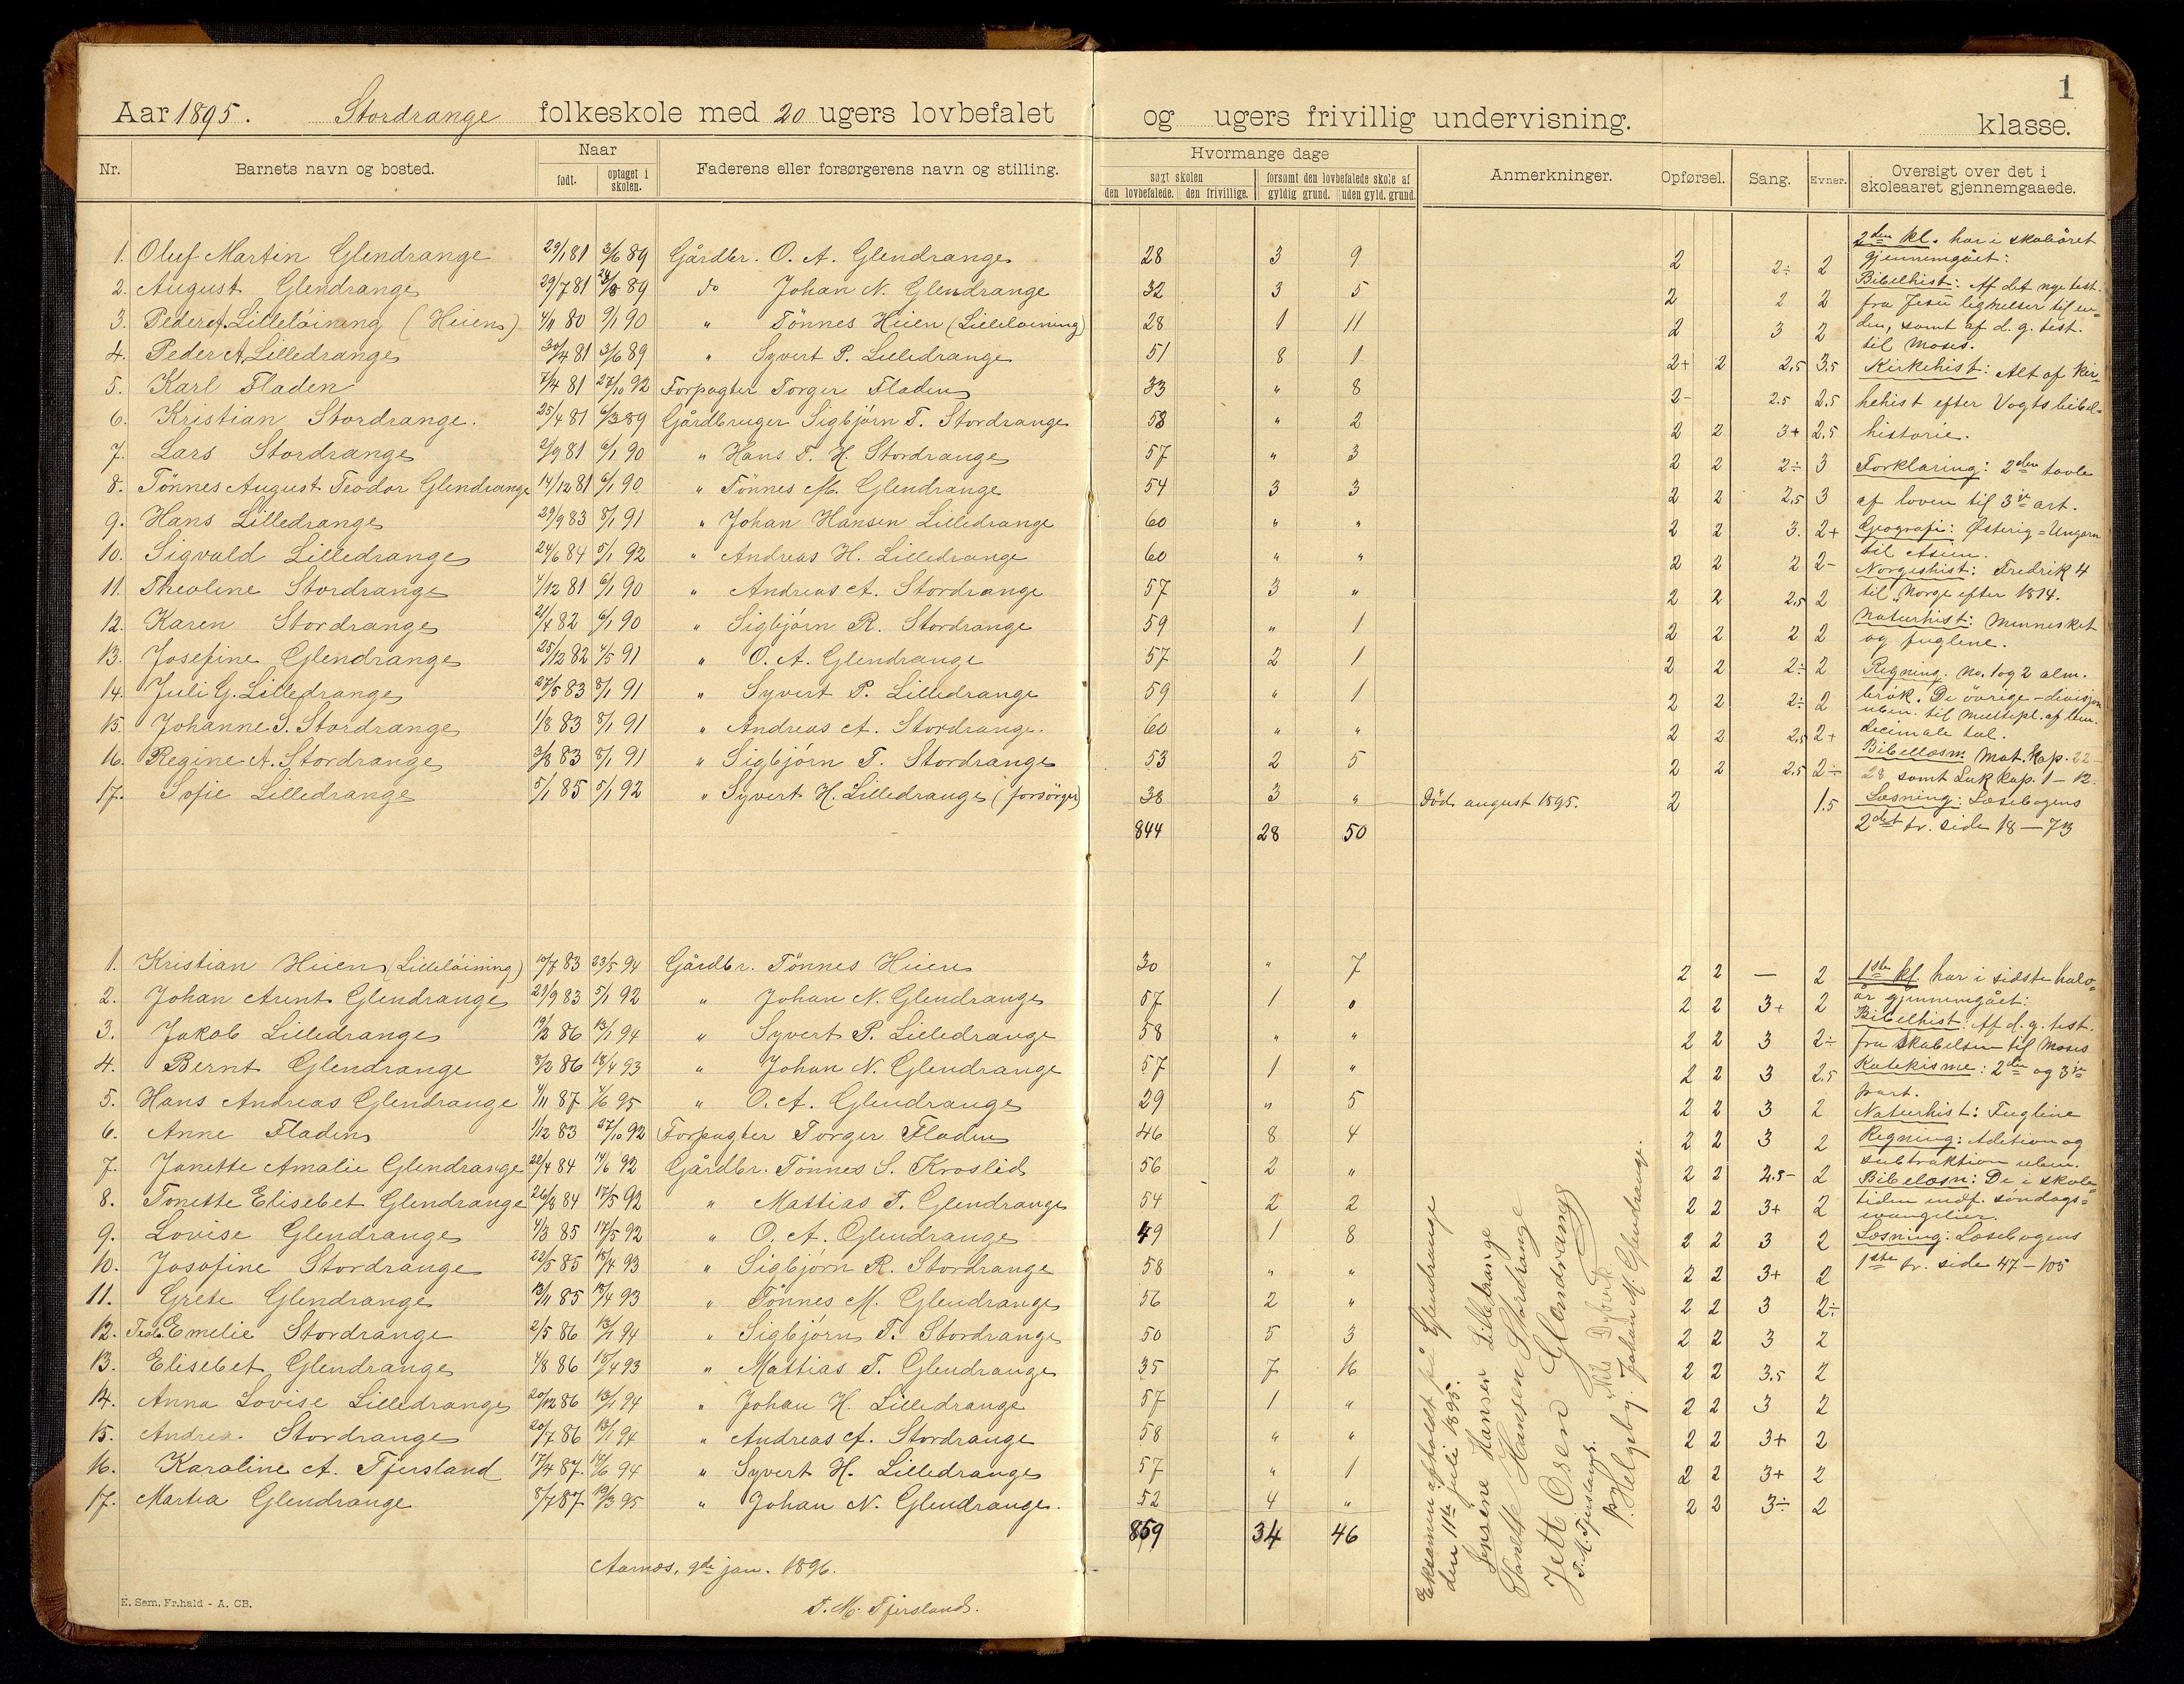 1
Aar 1895. Stordrange folkeskole med 20 ugers lovbefalet og ugers frivillig undervisning. klasse.
Nr. Barnets navn og bosted. Naar født. optaget i skolen. Faderens eller forsørgerens navn og stilling. Hvormange dage søgt skolen den lovbefalede. den frivillige. forsømt den lovbefalede skole af gyldig grund. uden gyld. grund. Anmerkninger. Opførsel. Sang. Evner. Oversigt over det i skoleaaret gjennemgaaede.
1. Oluf Martin Glendrange 29/1 81 3/6 89 Gårdbr. O. A. Glendrange 28 3 9 2 2÷ 2
2. August Glendrange 29/7 81 28/8 89 do Johan N. Glendrange 32 3 5 2 2 2
3. Peder A. Lilleløining (Heien) 4/11 80 9/1 90 " Tønnes Heien (Lilleløining) 28 1 11 2 3 2
4. Peder A. Lilledrange 30/4 81 3/6 89 " Syvert P. Lilledrange 51 8 1 2+ 2 2,5 3,5
5. Karl Fladen 7/4 81 27/10 92 Forpagter Torger Fladen 33 " 8 2- 2.5 2.5
6. Kristian Stordrange. 25/4 81 6/3 89 Gårdbruger Sigbjørn T. Stordrange 58 " 2 2 2 3+ 2.5
7. Lars Stordrange 2/9 81 6/1 90 " Hans T. H. Stordrange 57 " 3 2 2 2÷ 3
8. Tønnes August Teodor Glendrange 14/12 81 6/1 90 " Tønnes M. Glendrange 54 3 3 2 2 2,5 3
9. Hans Lilledrange 29/9 83 8/1 91 " Johan Hansen Lilledrange 60 " " 2 2 3. 2+
10. Sigvald Lilledrange 24/6 84 5/1 92 " Andreas H. Lilledrange 60 " " 2 2 2 2-
11. Theoline Stordrange 4/12 81 6/1 90 " Andreas A. Stordrange 57 3 " 2 2 2,5 2
12. Karen Stordrange 21/4 82 6/1 90 " Sigbjørn R. Stordrange 59 " 1 2 2 2 2
13. Josefine Glendrange 25/12 82 4/5 91 " O. A. Glendrange 57 2 1 2 2 2÷ 2
14. Juli G. Lilledrange 27/5 83 8/1 91 " Syvert P. Lilledrange 59 " 1 2 2 2÷ 2
15. Johanne S. Stordrange 1/8 83 8/1 91 " Andreas A. Stordrange. 60 " " 2 2 2,5 2+
16. Regine A. Stordrange 3/8 83 8/1 91 " Sigbjørn T. Stordrange 53 2 5 2 2 2,5 2÷
17. Sofie Lilledrange 5/1 85 5/1 92 " Syvert H. Lilledrange (forsørger) 38 3 " død august 1895. 2 1.5
844 28 50
2den kl. har i skoleåret
gjennemgået:
Bibelhist: Af det nye test.
fra Jesu lignelser til en=
den, samt af d. g. test.
til Moses.
Kirkehist: Alt af kir=
kehist efter Vogts bibel=
historie.
Forklaring: 2den tavle
af loven til 3je art.
Geografi: Østerig=Ungarn
til Asien.
Norgeshist: Fredrik 4
til Norge efter 1814.
Naturhist: Mennesket
og fuglene.
Regning: No. 1 og 2 alm.
brøk. De øvrige - divisjon
uben. til multipl. af ben.
decimale tal.
Bibellæsn: Mat. Kap. 22-
28 samt Luk kap. 1-12.
Læsning: Læsebogens
2det tr. side 18-73
1. Kristian Heien (Lilleløining) 10/7 83 23/5 94 Gårdbr. Tønnes Heien 30 " 7 2 2 — 2
2. Johan Arent Glendrange 29/9 83 5/1 92 " Johan N. Glendrange 57 1 " 2 2 3+ 2
3. Jakob Lilledrange 19/2 86 13/1 94 " Syvert P. Lilledrange 58 " " 2 2 3 2÷
4. Bernt Glendrange 8/2 86 18/4 93 " Johan N. Glendrange 57 1 " 2 2 3 2.5
5. Hans Andreas Glendrange 4/11 87 4/6 95 " O. A. Glendrange 29 " 5 2 2 3 2
6. Anne Fladen 1/12 83 27/10 92 Forpagter Torger Fladen 46 8 4 2 2 3 2
7. Janette Amalie Glendrange 22/4 84 14/6 92 Gårdbr. Tønnes S. Kroslid 56 2 " 2 2 2.5- 2
8. Tonette Elisebet Glendrange 26/8 84 17/5 92 " Mattias T. Glendrange 54 2 2 2 2 3+ 2
9. Lovise Glendrange 4/3 85 17/5 92 " O. A. Glendrange 49 1 8 2 2 3 2
10. Josefine Stordrange 22/5 85 18/4 93 " Sigbjørn R. Stordrange 58 " " 2 2 3+ 2
11. Grete Glendrange 13/11 85 18/4 93 " Tønnes M. Glendrange 56 2 " 2 2 3 2÷
12. Emelie Stordrange 2/5 86 13/1 94 " Sigbjørn T. Stordrange 50 5 3 2 2 3 2
13. Elisebet Glendrange 4/8 86 18/4 93 " Mattias T. Glendrange 35 7 16 2 2 3.5 2
14. Anna Lovise Lilledrange 20/12 86 13/1 94 " Johan H. Lilledrange 57 1 " 2 2 3 2
15. Andrea Stordrange 20/7 86 13/1 94 " Andreas A. Stordrange 58 " " 2 2 3+ 2
16. Karoline A. Tjersland 17/4 87. 14/6 94 " Syvert H. Lilledrange 57 " 1 2 2 3+ 2
17. Marta Glendrange 8/7 87. 19/3 95 " Johan N. Glendrange. 52 4 " 2 2 3÷ 2
859 34 46
1ste kl. har i sidste halv=
år gjennemgået:
Bibelhist: Af d. g. test.
fra skabelsen til Moses
Katekisme: 2den og 3je
part.
Naturhist: Fuglene
Regning: Adition og
subtraktion uben.
Bibellæsn: De i skole=
tiden indf. søndags=
evangelier.
Læsning: Læsebogens
1ste tr. side 47-105
Eksamen afholdt på Glendrange
den 11te juli 1895.
Jensine Hansen Lilledrange
Hansen Stordrange
Jett Osen Glendrange
T. M. Tjersland. Nils Dybvik
P. Helgeby. Johan M. Glendrange.
Aarnes, 9de jan. 1896.
T. M. Tjersland.
E. Sem, Fr.hald - A. CB.